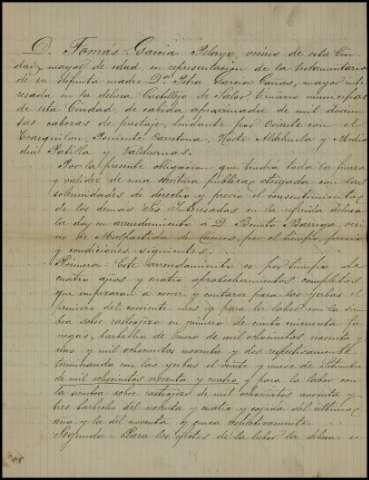 D. Tomás García Pelayo, vecino de esta Ciu-
dad, mayor de edad en representacion de la testamentaria
de su difunta madre Dª Petra García Cañas, mayor inte-
resada en la dehesa Castillejo de Salor término municipal
de esta Ciudad, de cabida aproximada de mil doscien-
tas cabezas de pastaje, lindante por Oriente con el
Trasquilon, Poniente Carretona, Norte Aldihuela y Medio
dia Patilla y
Por la presente obligacion que tendra toda la fuerza
y validez de una escritura publica otorgada con las
solemnidades de derecho y previo el consentimiento
de los demas Sres Interesados en la referida dehesa
la doy en arrendamiento á D. Benito Barriga veci
no de Malpartida de Cáceres por el tiempo, precio
y condiciones siguientes.
Primera. Este arrendamiento es por tiempo de
cuatro años y cuatro aprovechamientos completos
que empezaran á correr y contarse para las yerbas el
primero del corriente mes y para la labor con la siem
bra sobre rastrojeo en número de ciento cincuenta fa
negas, barbecho de Enero de mil ochocientos noventa
uno y mil ochocientos noventa y dos respectivamente
terminando con las yerbas el veinte y nueve de Setiembre
de mil ochocientos noventa y cuatro y para la labor con
la siembra sobre rastrojeo de mil ochocientos noventa y
tres barbecho del noventa y cuatro y cogida del último
ano y la del noventa y cinco
Segunda. Para los efectos de la labor la dehesa